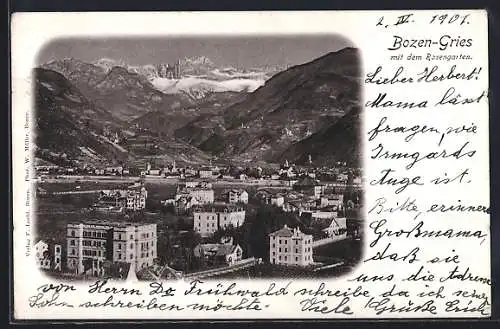 2. IV. 1901.
Bozen-Gries
mit dem Rosengarten.
Lieber Herbert!
Mama lässt
fragen, wie
Irmgards
Auge ist.
Bitte, erinnere
Großmama,
daß sie
uns die Adresse
von Herrn Do Frühwald schreibe, da ich seinem
Sohn schreiben möchte. Viele Grüße Erich
Verlag F. Bozen. Phot. W. Müller, Bozen.